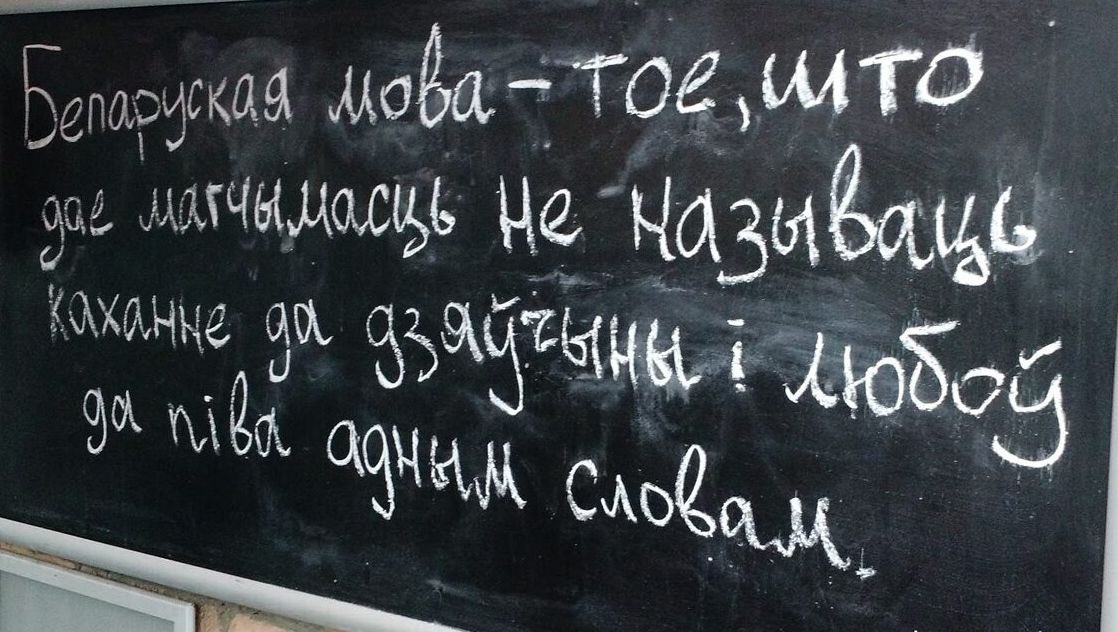 Беларуская мова – тое, што
дае магчымасць не называць
каханне да дзяўчыны і любоў
да піва адным словам.